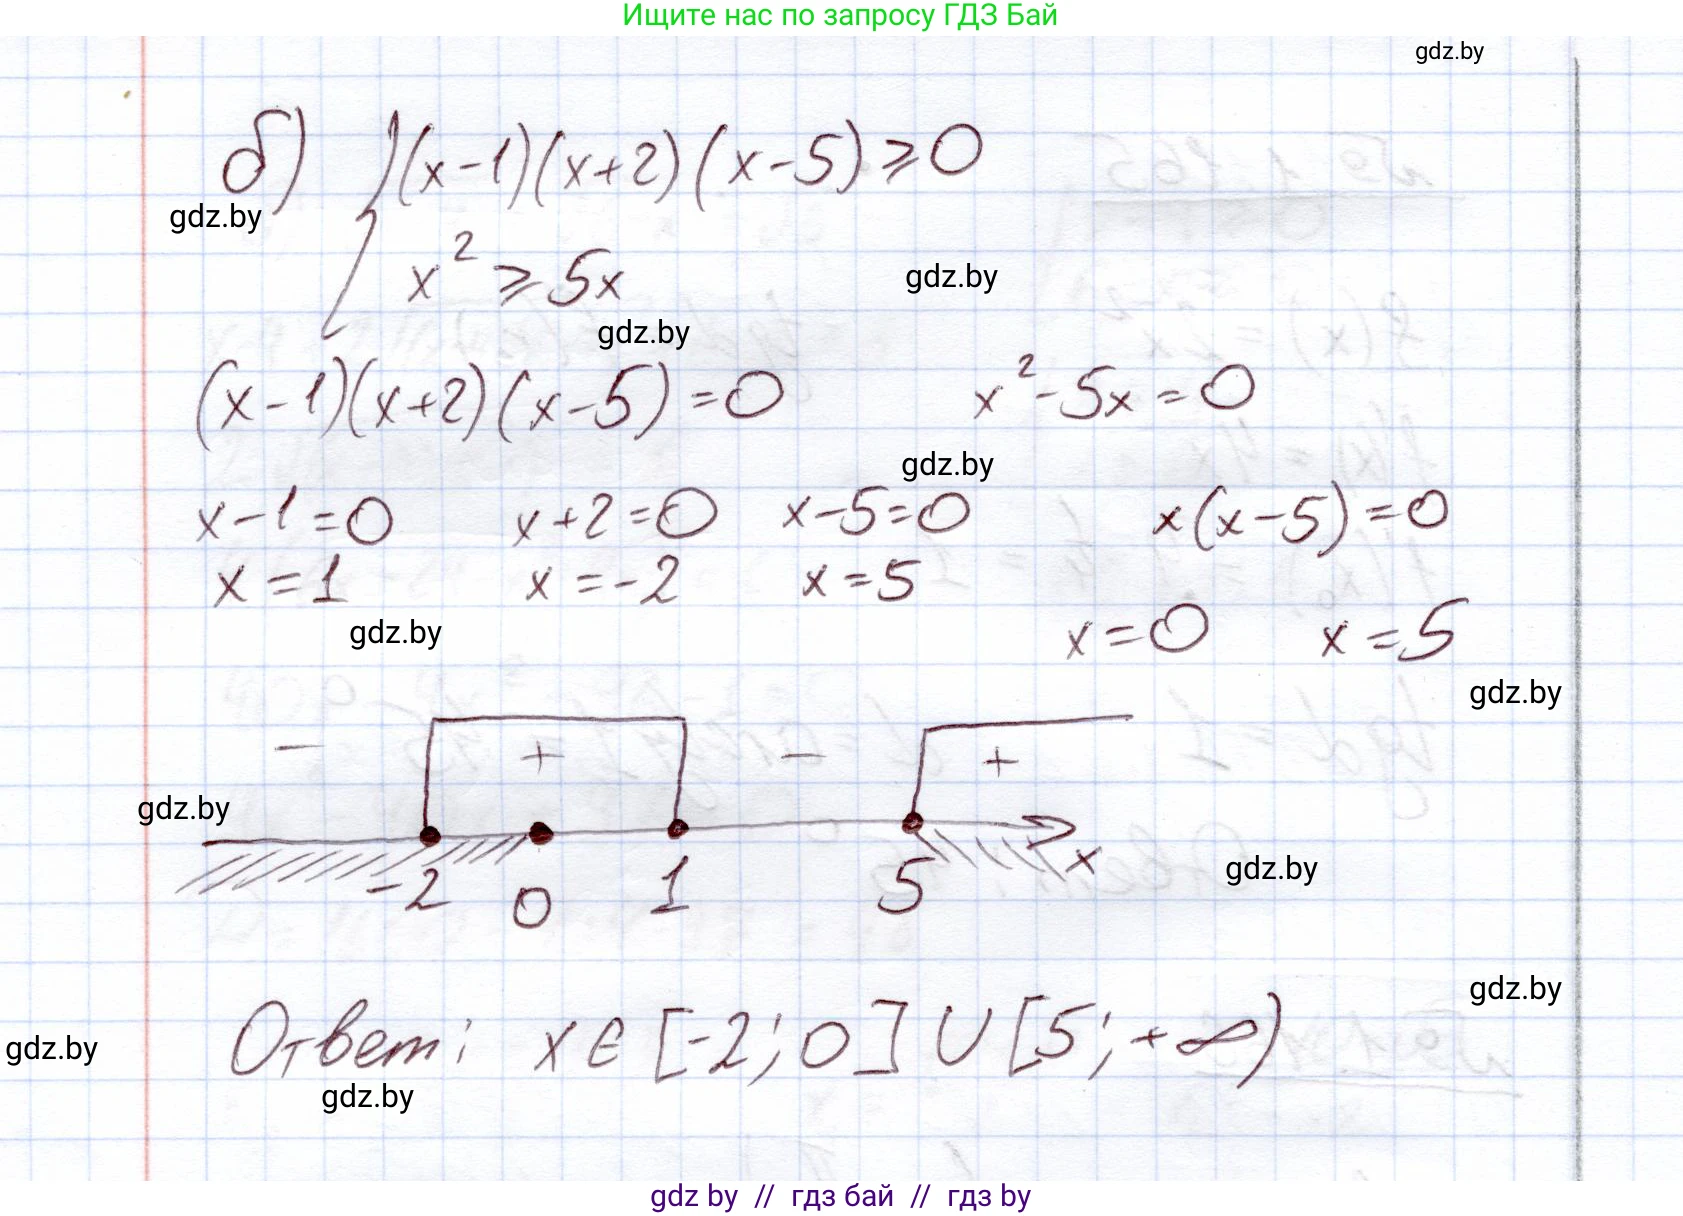 Ищите нас по запросу ГДЗ Бай
gdz.by
б) { (x-1)(x+2)(x-5) ⩾ 0
gdz.by
x² ⩾ 5x
gdz.by
gdz.by
(x-1)(x+2)(x-5)=0 x²-5x=0
gdz.by
x-1=0 x+2=0 x-5=0 x(x-5)=0
x=1 x=-2 x=5
gdz.by
x=0 x=5
gdz.by
- + - +
gdz.by
x
gdz.by
-2 0 1 5
gdz.by
Ответ: x∈[-2; 0]∪[5; +∞)
gdz.by
gdz.by
gdz by // гдз бай // гдз by